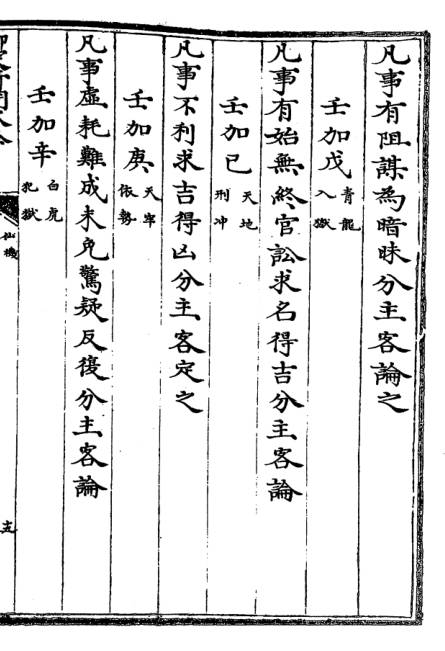 凡事有阻謀為暗昧分主客論之
壬加戊 青龍入獄
凡事有始無終官訟求名得吉分主客論
壬加已 天地刑冲
凡事不利求吉得凶分主客定之
壬加庚 天牢依勢
凡事虛耗難成未免驚疑反復分主客論
壬加辛 白虎犯獄
仙機
五